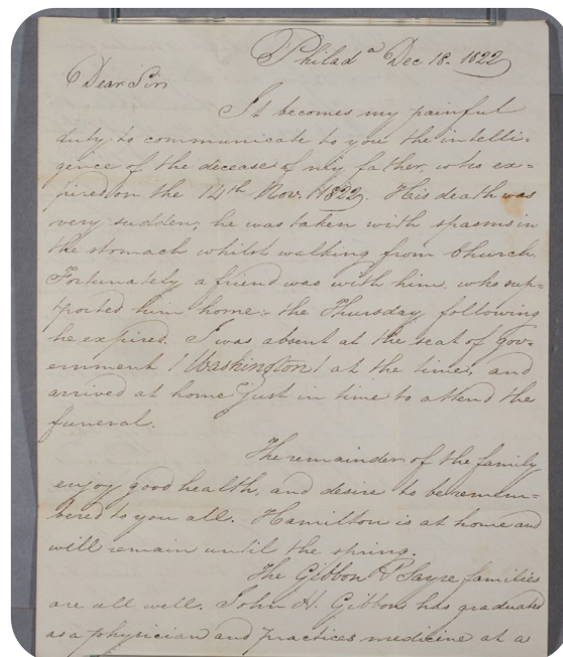 Philadᵃ Dec 18. 1822
Dear Sir,
It becomes my painful
duty to communicate to you the intelli=
gence of the decease of my father, who ex=
pired on the 14th Nov. 1822. His death was
very sudden, he was taken with spasms in
the stomach whilst walking from Church.
Fortunately a friend was with him, who sup=
ported him home: the Thursday following
he expired. I was absent at the seat of gov=
ernment (Washington) at the time, and
arrived at home just in time to attend the
funeral.
The remainder of the family
enjoy good health, and desire to be remem=
bered to you all. Hamilton is at home and
will remain until the spring.
The Gibbon & Sayre families
are all well. John H. Gibbon has graduated
as a physician and practices medicine at a